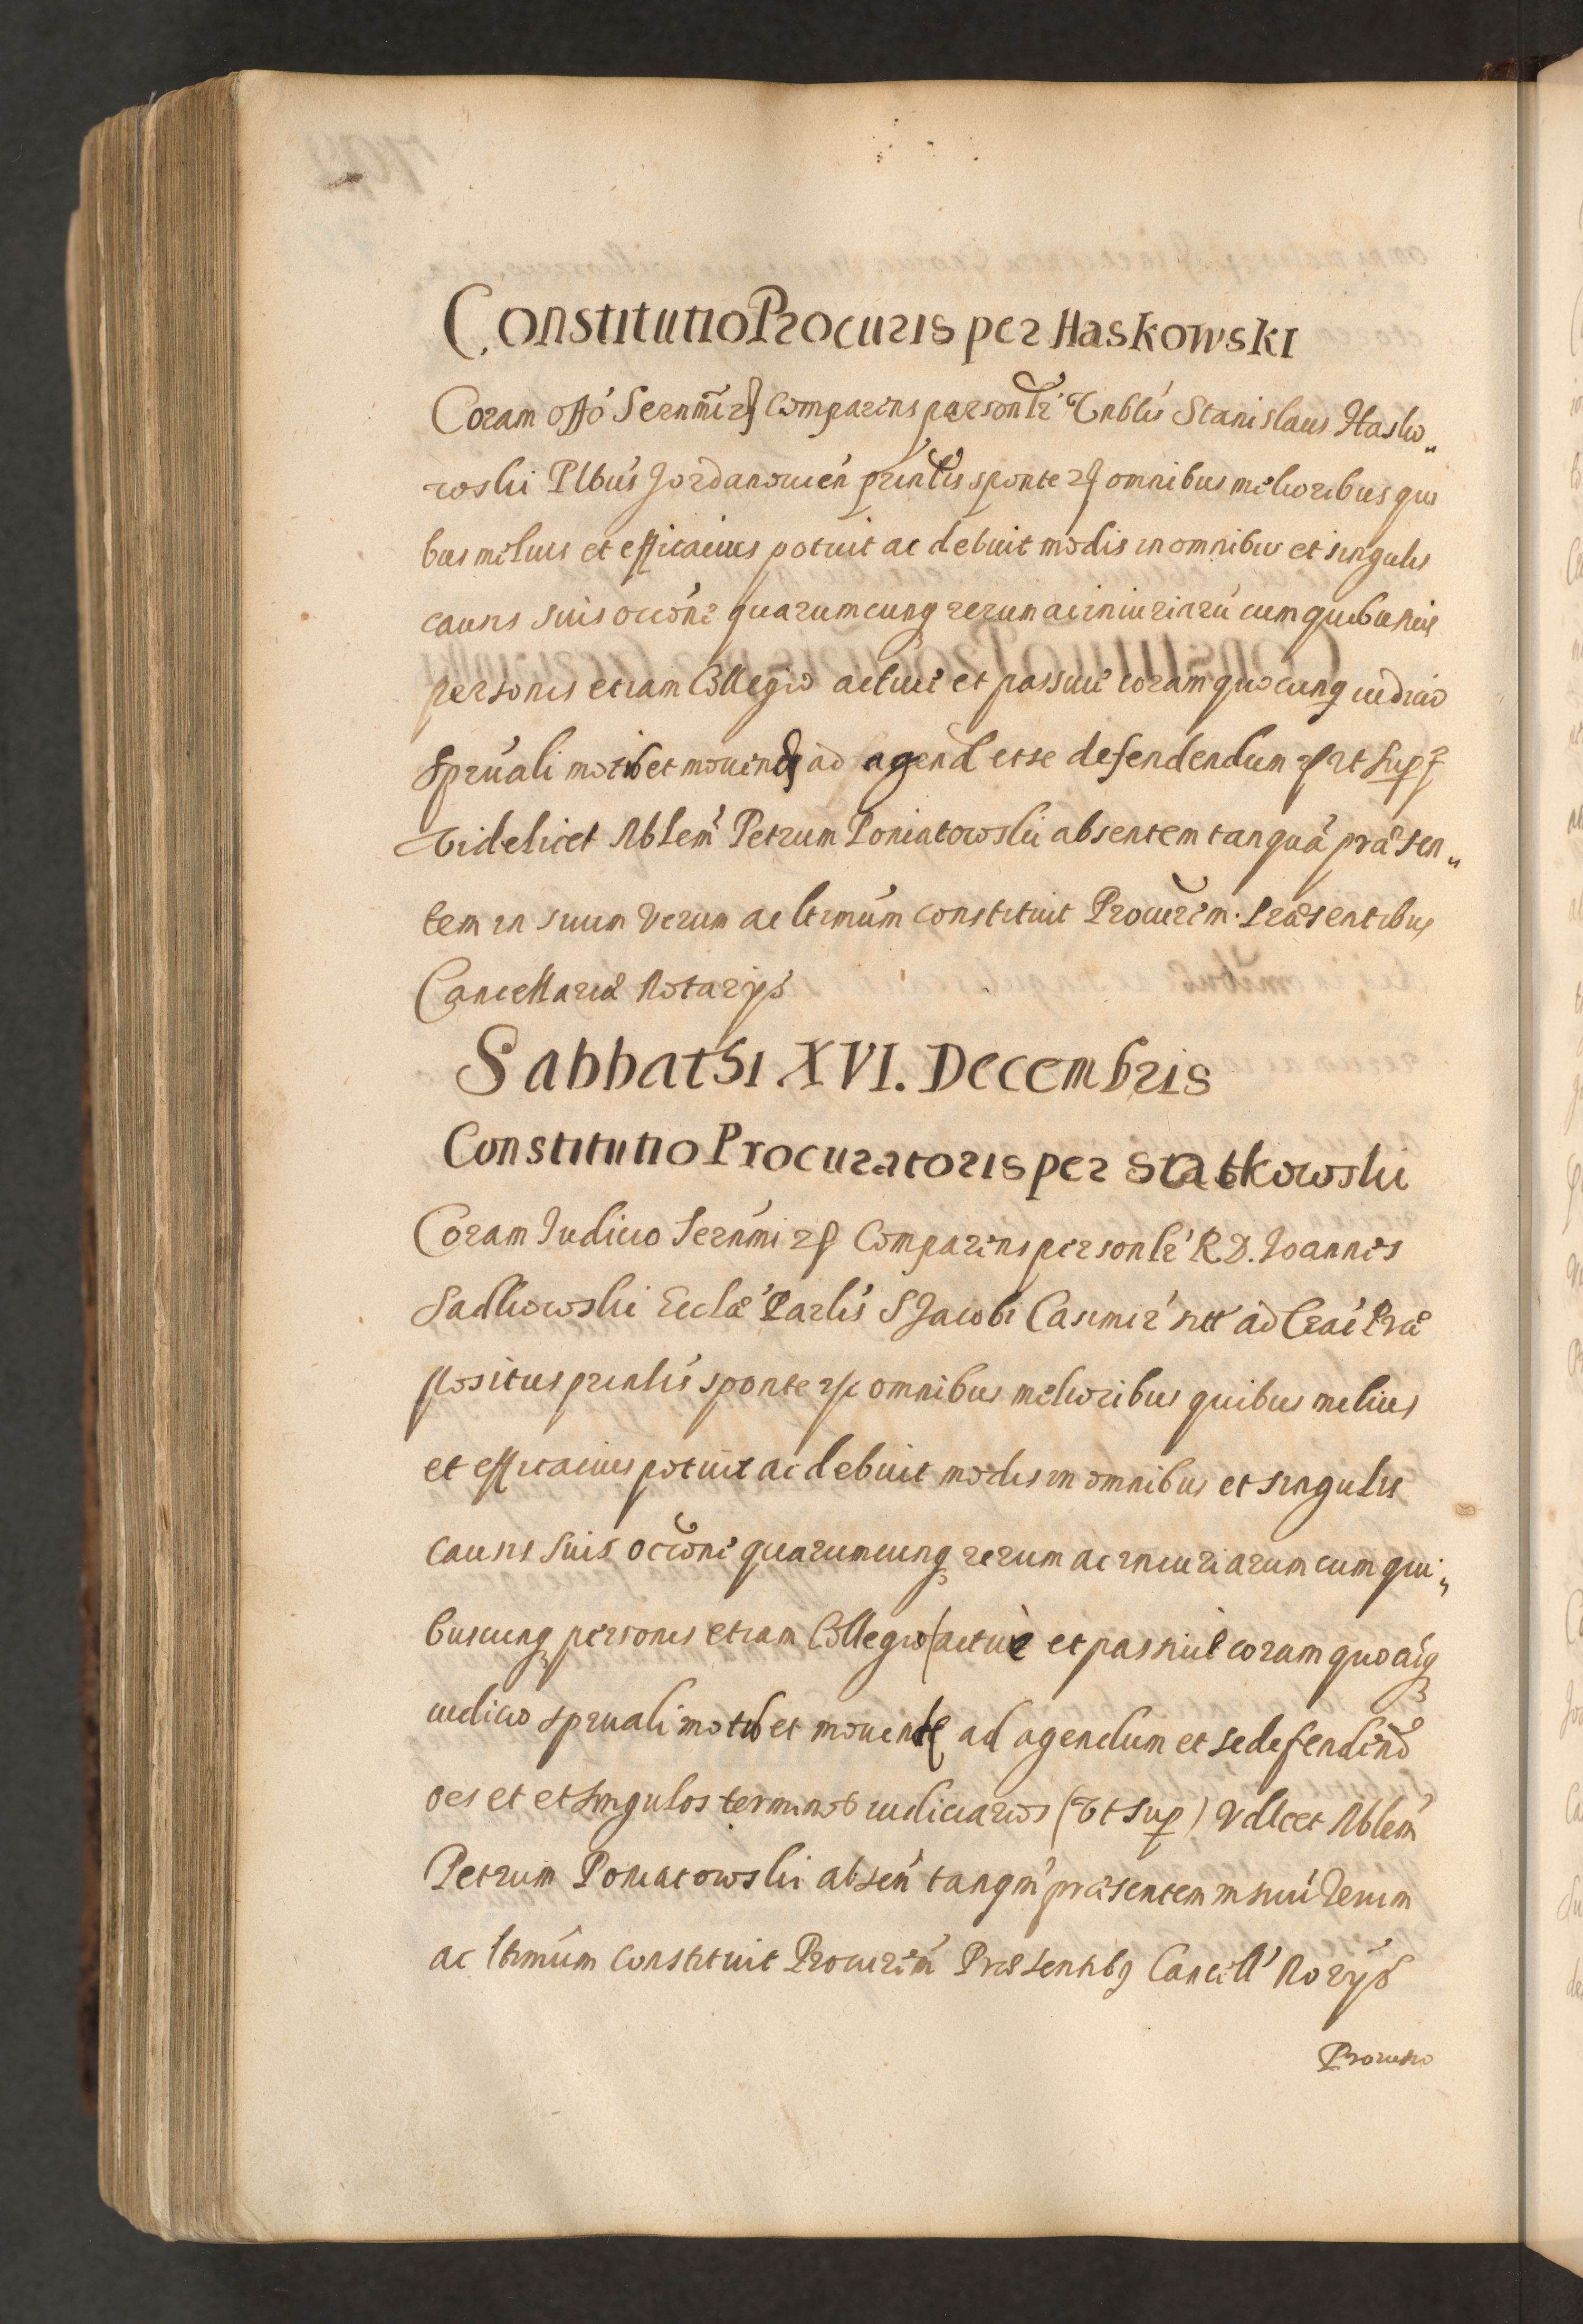 Constitutio Procuris per Haskowski
Coram offo Sernmi rc Comparens personlr Vnblis Stanislaus Hasko„
wski Plbus Jordanovien prinlis sponte rc omnibus melioribus qui
bus melius et efficacius potuit ac debuit modis in omnibus et singulis
causis suis occone quarumcunq rerum ac iniuriaru cum quibusuis
personis etiam Collegio actiue et passiue coram quocunq iudicio
spruali motis et mouend ad agend et se defendendum rc Vt Sup
Videlicet Nblem Petrum Poniatowski absentem tanqua præsen„
tem in suum Verum ac ltimum constituit Procurem. Præsentibus
Cancellariæ Notarys
Sabbathi XVI. Decembris
Constitutio Procuratoris per Statkowski
Coram Iudicio Sernmi rc Comparens personlr R.D. Joannes
Sadkowski Ecclæ Parlis S Jacobi Casimir sitt ad Crac Præ
positus prinlis sponte rc omnibus melioribus quibus melius
et efficacius potuit ac debuit modis in omnibus et singulis
causis suis occone quarumcunq rerum ac iniuriarum cum qui„
buscunq personis etiam Collegio (actiue et passiue coram quocuq
iudicio spruali motis et mouend ad agendum et se defendend
oes et et singulos terminos iudiciarios (Vt sup) Vdlcet Nblem
Petrum Poniatowski absen tanqm præsentem in suu Verum
ac ltimum constituit Procurem Præsentibq Cancell Norys